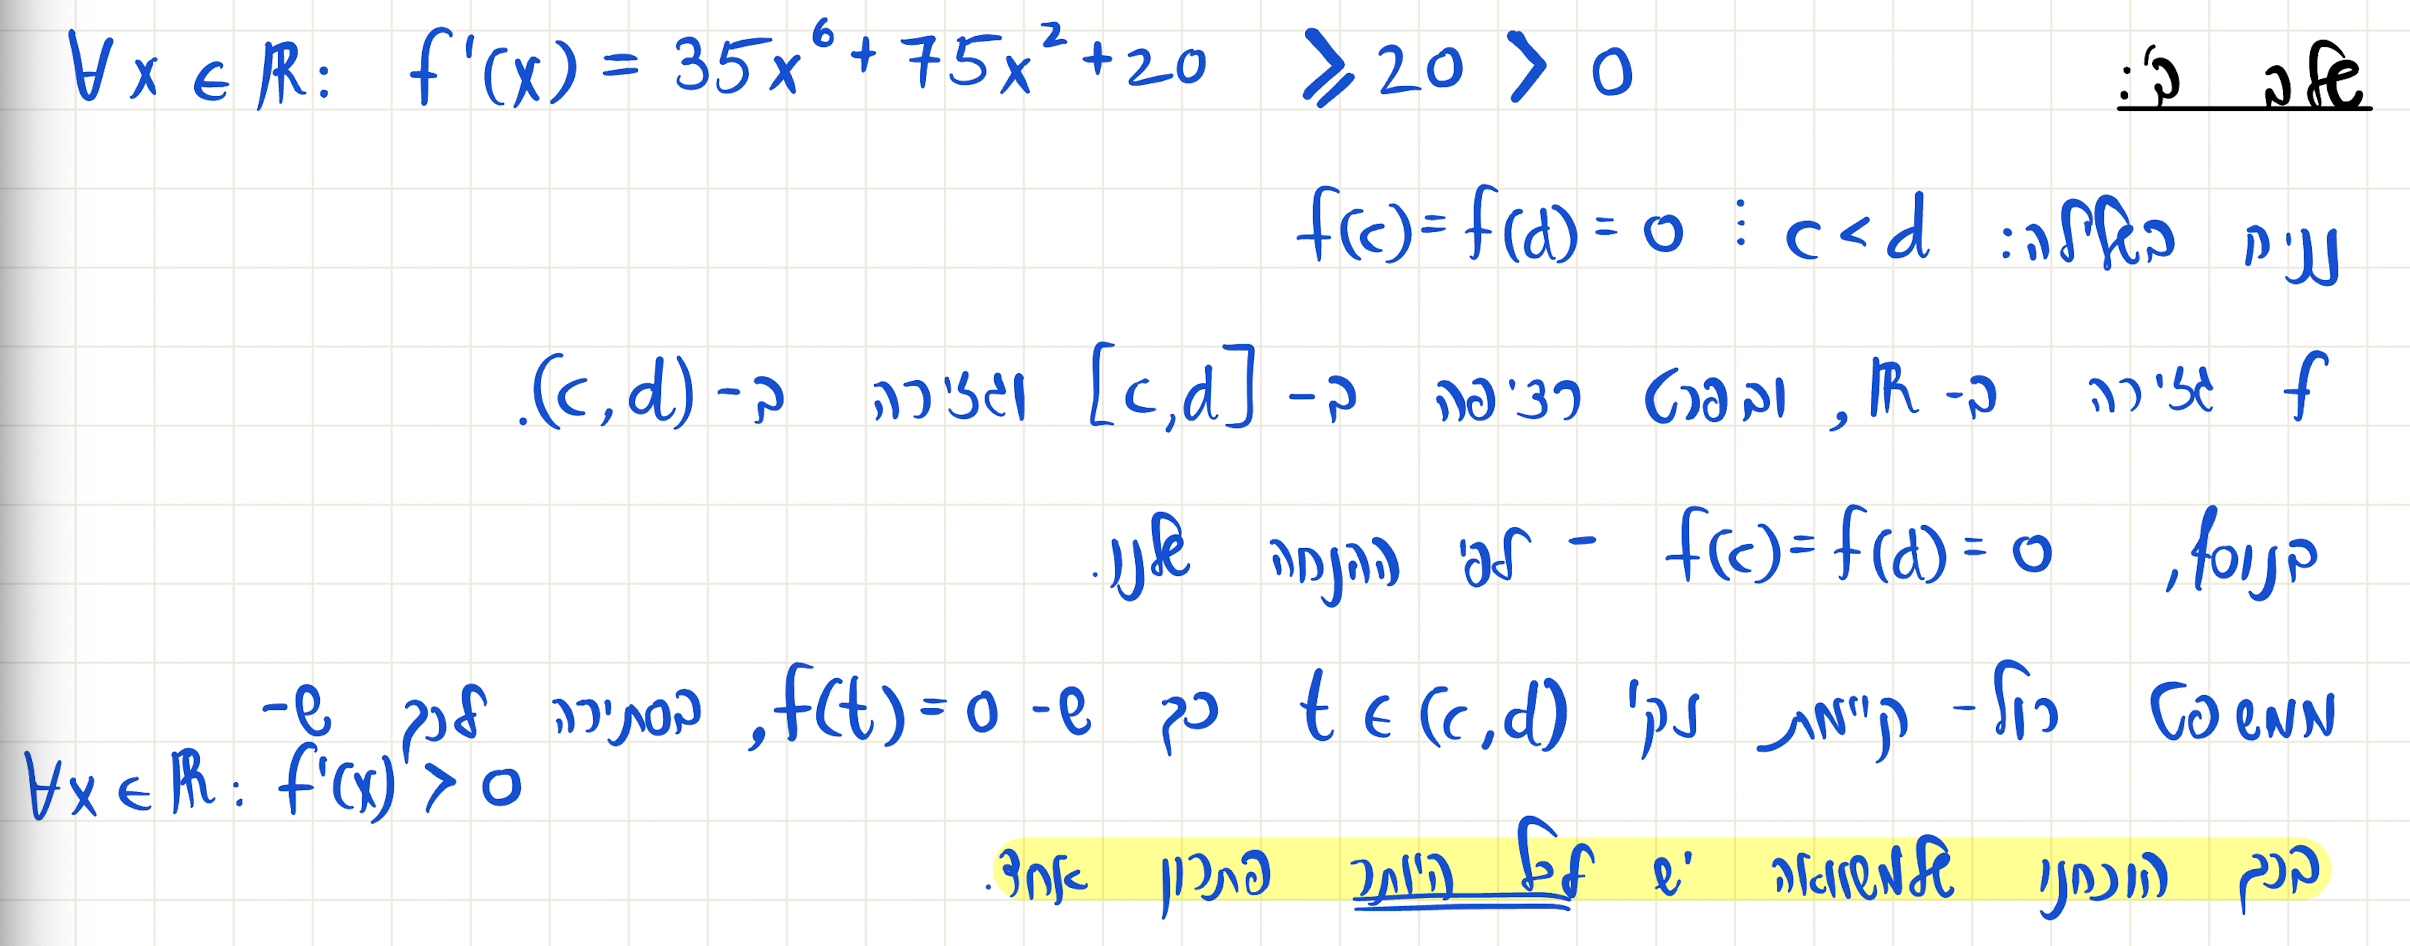 שלב ב': ∀x ∈ ℝ: f'(x) = 35x⁶ + 75x² + 20 ⩾ 20 > 0
נניח בשלילה: c < d ⋮ f(c) = f(d) = 0
f גזירה ב- ℝ, ובפרט רציפה ב- [c,d] וגזירה ב- (c,d).
בנוסף, f(c) = f(d) = 0 - לפי ההנחה שלנו.
ממשפט רול - קיימת נק' t ∈ (c,d) כך ש- f(t) = 0, בסתירה לכך ש-
∀x ∈ ℝ: f'(x) > 0
בכך הוכחנו שלמשוואה יש לכל היותר פתרון אחד.